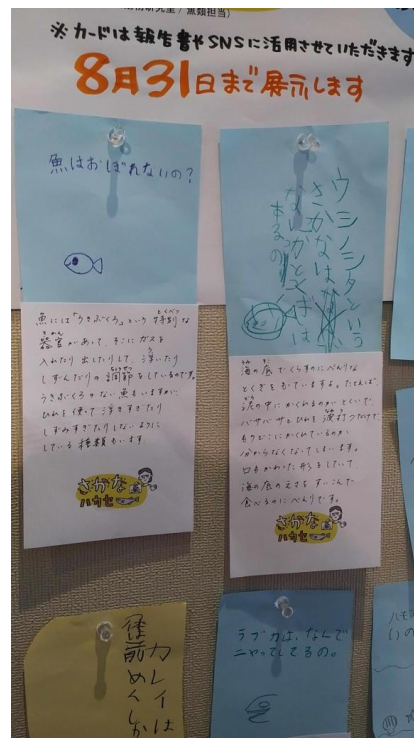 研究室 / 魚類担当)
※カードは報告書やSNSに活用させていただきます
8月31日まで展示します
魚はおぼれないの?
魚には「うきぶくろ」という特別な
器官があって、そこにガスを
入れたり出したりして、浮いたり
しずんだりの調節をしているのです。
うきぶくろのない魚もいますが、
ひれを使って浮きすぎたり
しずみすぎたりしないように
している種類もいます
さかな
ハカセ
ウシノシタという
さかなは
なにかとくいは
あるの
海の底でくらすのにべんりな
とくぎをもっていますよ。たとえば、
泥の中にかくれるのがとくいで、
バサバサとひれを波打つだけで
もうどこにかくれているのか
分からなくなってしまいます。
口もかわった形をしていて、
海の底のえさをすいこんで
食べるのにべんりです。
さかな
ハカセ
カレイは
ラブカは、なんで
ニヤってしてるの。